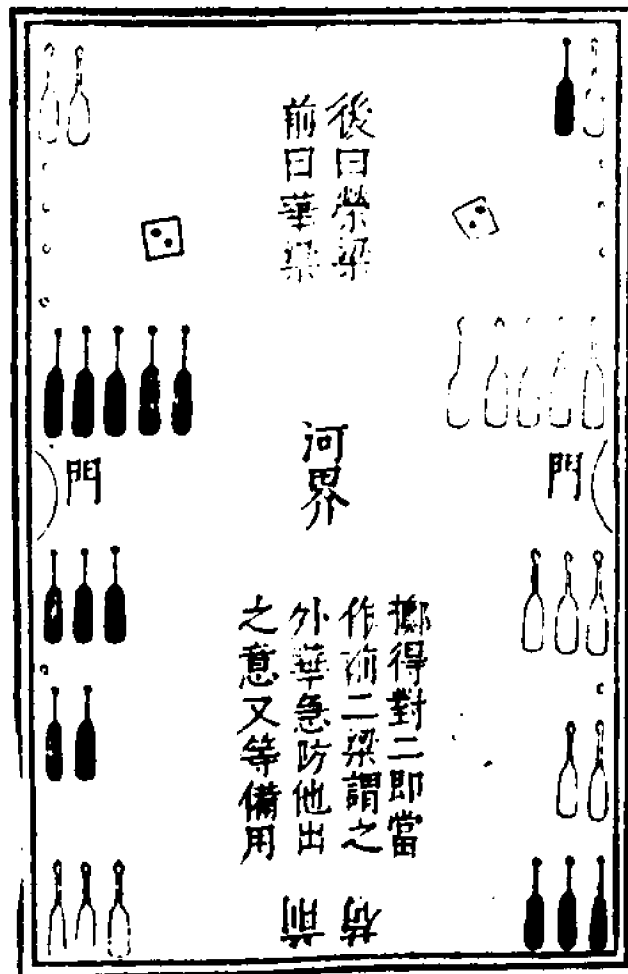 後曰榮梁
前曰華梁
河界
門
門
擲得對二即當
作前二梁謂之
外華急防他出
之意又等備用
前
前